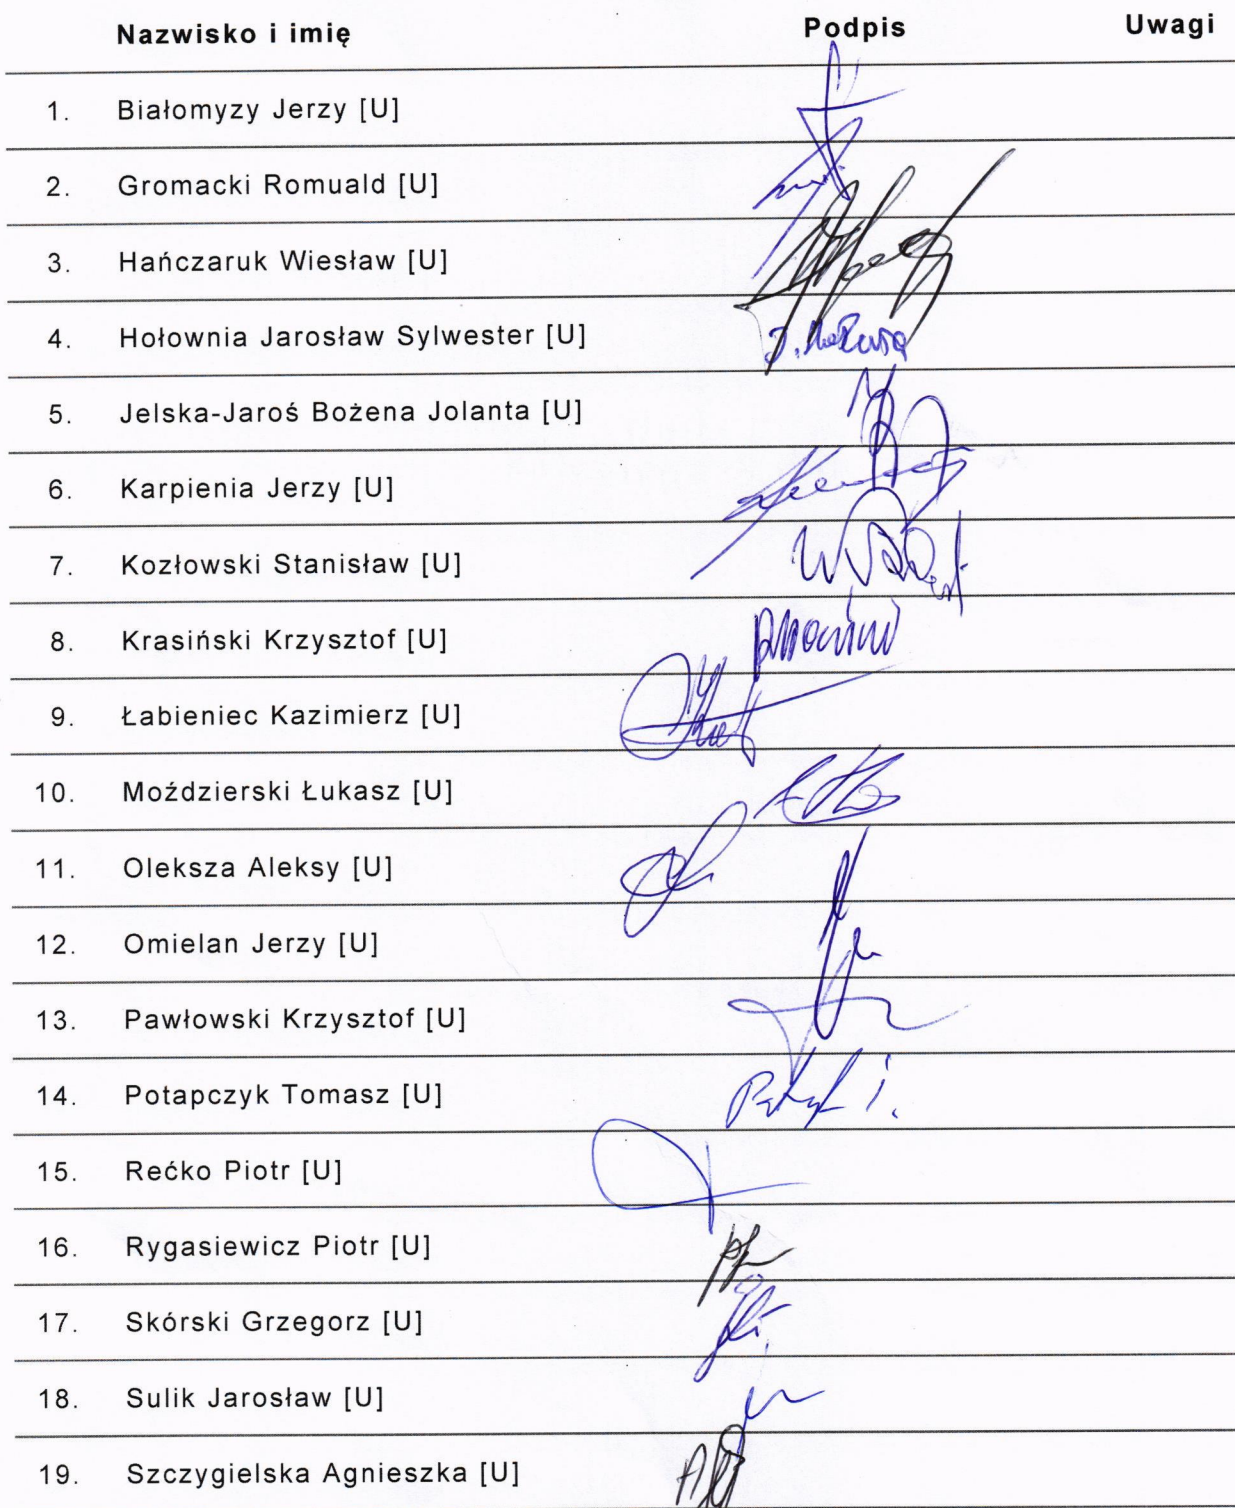 Nazwisko i imię Podpis Uwagi
1. Białomyzy Jerzy [U]
2. Gromacki Romuald [U]
3. Hańczaruk Wiesław [U]
4. Hołownia Jarosław Sylwester [U] J.
5. Jelska-Jaroś Bożena Jolanta [U]
6. Karpienia Jerzy [U]
7. Kozłowski Stanisław [U]
8. Krasiński Krzysztof [U]
9. Łabieniec Kazimierz [U]
10. Moździerski Łukasz [U]
11. Oleksza Aleksy [U]
12. Omielan Jerzy [U]
13. Pawłowski Krzysztof [U]
14. Potapczyk Tomasz [U]
15. Rećko Piotr [U]
16. Rygasiewicz Piotr [U]
17. Skórski Grzegorz [U]
18. Sulik Jarosław [U]
19. Szczygielska Agnieszka [U]